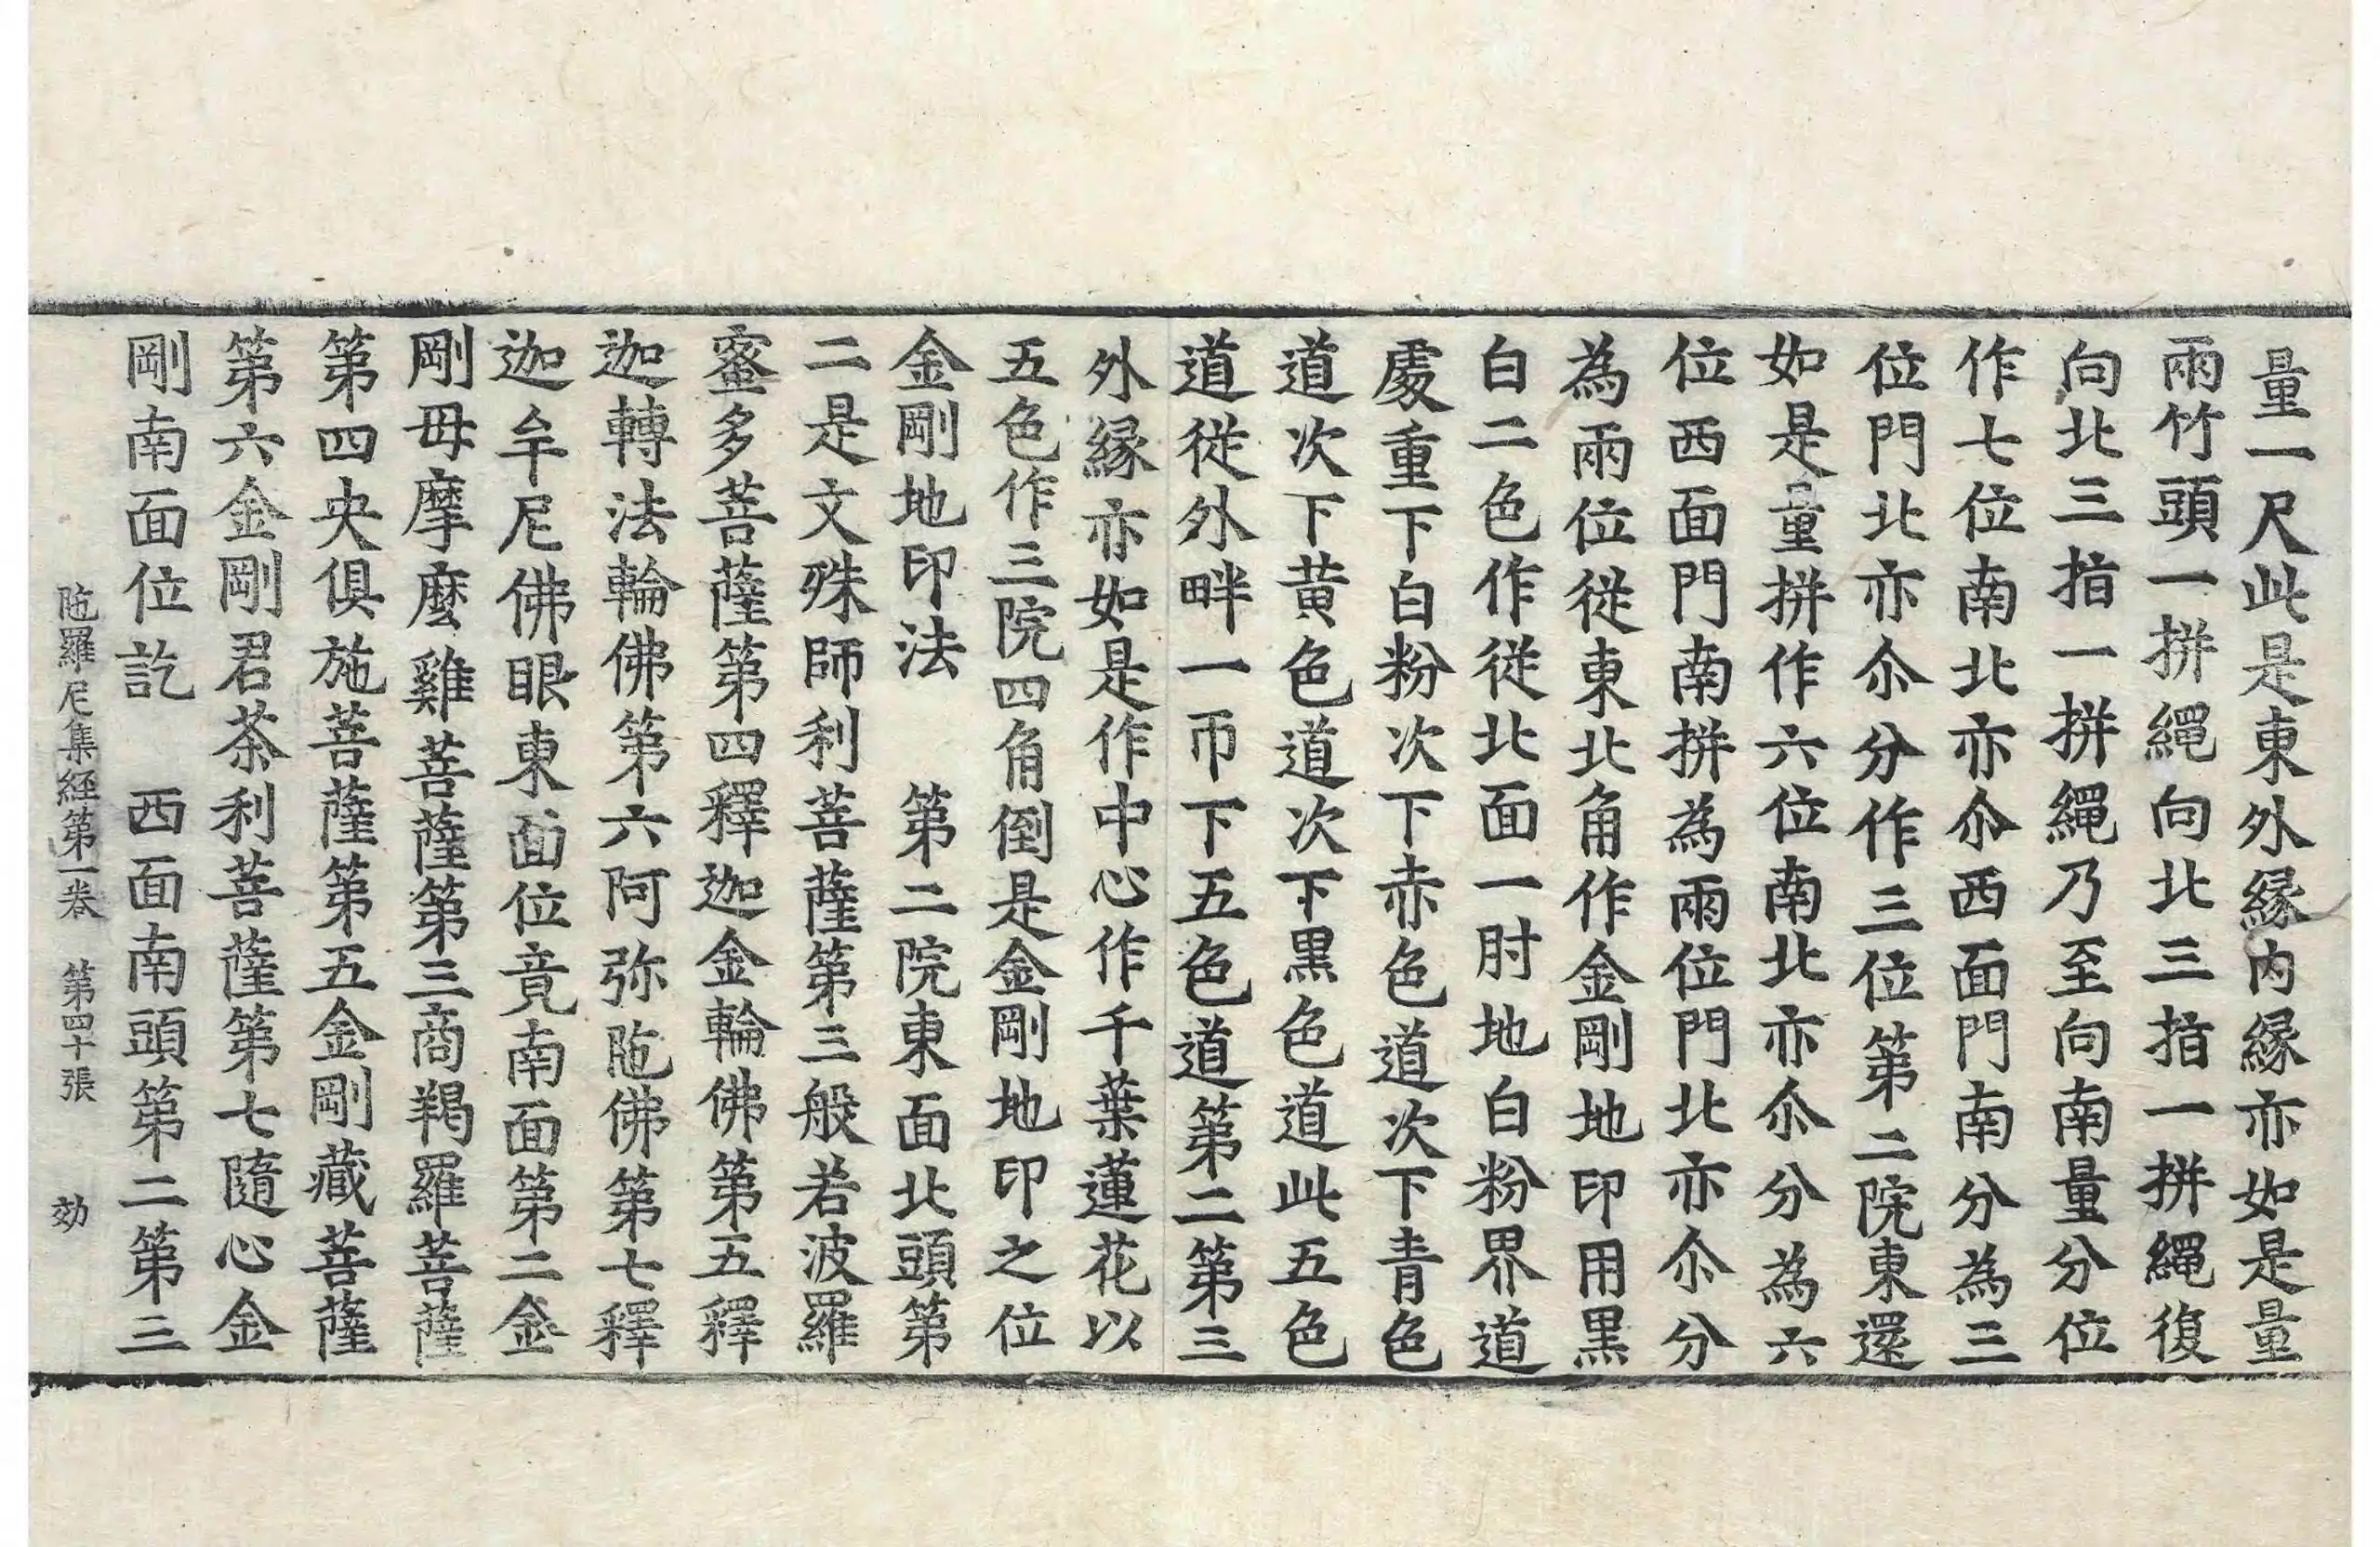 量一尺此是東外縁内縁亦如是量
兩竹頭一拼繩向北三指一拼繩復
向北三指一拼繩乃至向南量分位
作七位南北亦尒西面門南分為三
位門北亦尒分作三位第二院東還
如是量拼作六位南北亦尒分為六
位西面門南拼為兩位門北亦尒分
為兩位從東北角作金剛地印用黒
白二色作從北面一肘地白粉界道
處重下白粉次下赤色道次下青色
道次下黄色道次下黒色道此五色
道從外畔一帀下五色道第二第三
外縁亦如是作中心作千葉蓮花以
五色作三院四角倒是金剛地印之位
金剛地印法　第二院東面北頭第
二是文殊師利菩薩第三般若波羅
蜜多菩薩第四釋迦金輪佛第五釋
迦轉法輪佛第六阿弥陁佛第七釋
迦牟尼佛眼東面位竟南面第二金
剛母摩麼雞菩薩第三商羯羅菩薩
第四央俱施菩薩第五金剛藏菩薩
第六金剛君茶利菩薩第七隨心金
剛南面位訖　西面南頭第二第三
陁羅尼集経第一卷　第四十張　効